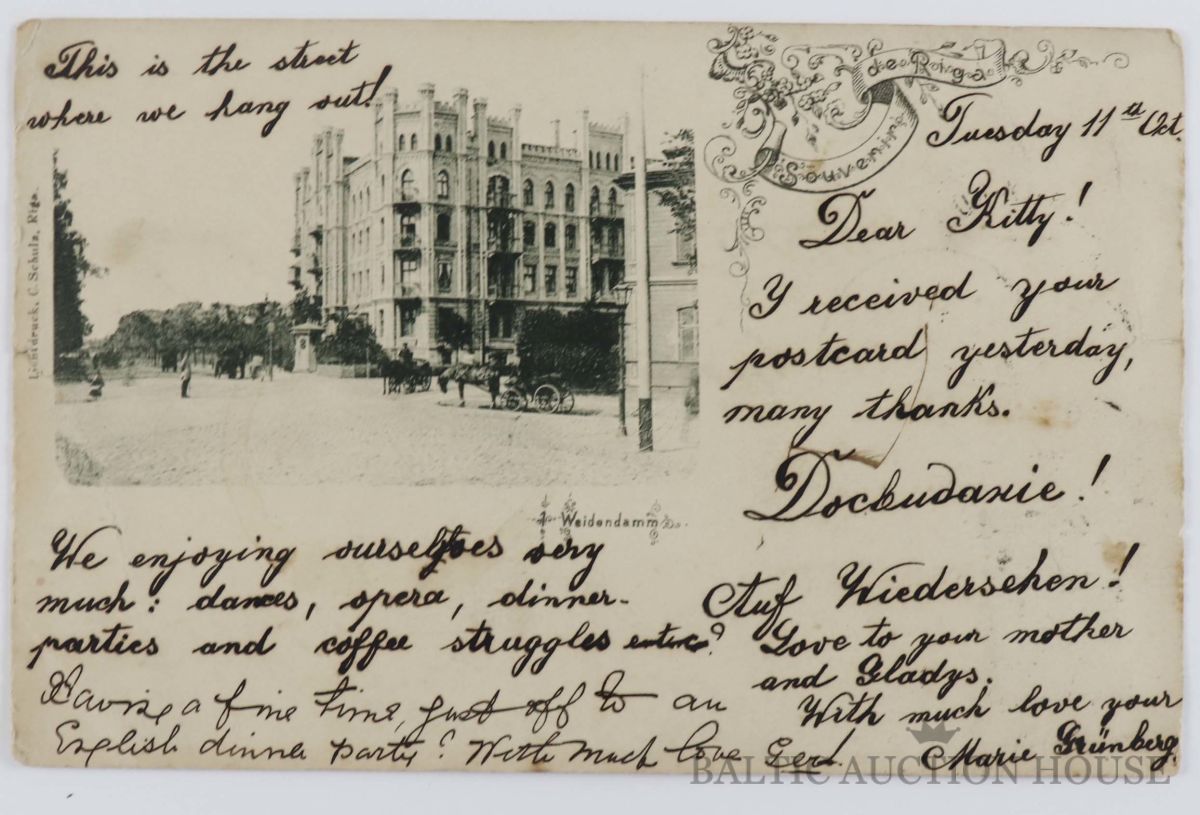 This is the street
where we hang out!
Souvenir de Riga
Tuesday 11th Oct.
Dear Kitty!
I received your
postcard yesterday,
many thanks.
Docbudanie!
Auf Wiedersehen!
Love to your mother
and Gladys.
With much love your
Marie Grünberg.
Lichtdruck. C. Schulz, Riga.
Weidendamm
We enjoying ourselves very
much: dances, opera, dinner-
parties and coffee struggles
Having a fine time, just off to an
English dinner party! With much love Ger.
BALTIC AUCTION HOUSE